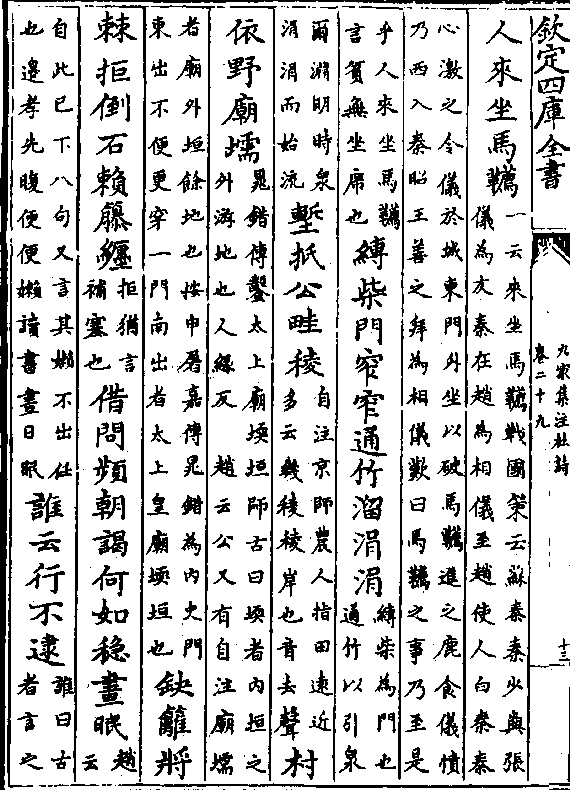 欽定四庫全書
九家集注杜詩
卷二十九
十三
人來坐馬韉
一云來坐馬韉戰國策云蘇秦秦少與張
儀為友秦在趙為相儀至趙使人白秦秦
心激之令儀於城東門外坐以破馬韉進之鹿食儀憤
乃西入秦昭王善之拜為相儀歎曰馬韉之事乃至是
乎人來坐馬韉
言貧無坐席也
縛柴門窄窄通竹溜涓涓
縛柴為門也
通竹以引泉
爾淵明時泉
涓涓而始流
塹抵公畦稜
自注京師農人指田遠近
多云幾稜稜岸也音去聲
村
依野廟壖
晁錯傳鑿太上廟堧垣師古曰堧者内垣之
外游地也人緣反 趙云公又有自注廟壖
者廟外垣餘地也按申屠嘉傳晁錯為内史門
東出不便更穿一門南出者太上皇廟堧垣也
缺籬將
棘拒倒石賴藤纏
拒猶言
補塞也
借問頻朝謁何如穩晝眠
趙
云
自此已下八句又言其懶不出仕
也邊孝先腹便便懶讀書晝日眠
誰云行不逮
誰曰古
者言之